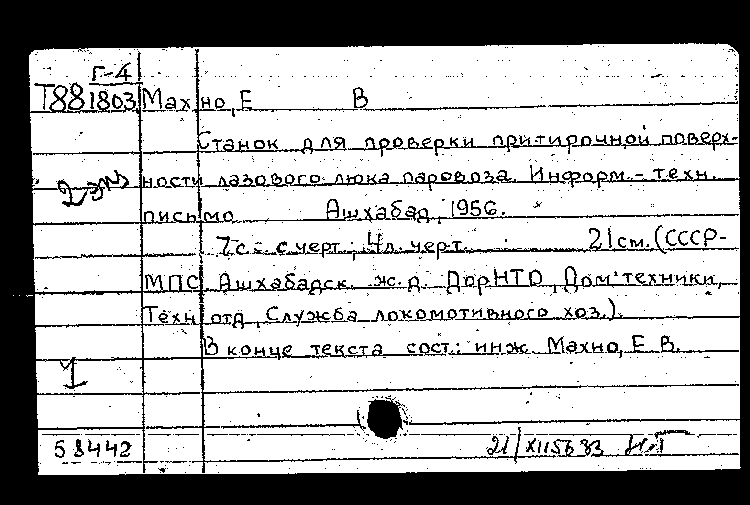 Г-4
Т88 1803 Махно, Е В
Станок для проверки притирочной поверх-
2 экз ности лазового люка паровоза. Информ.-техн.
письмо Ашхабад, 1956.
7с. с черт.; 4л. черт. 21см. (СССР-
МПС Ашхабадск. ж.д. ДорНТО, Дом техники,
Техн отд, Служба локомотивного хоз.).
В конце текста сост.: инж. Махно, Е. В.
1
58442 21/XII 56